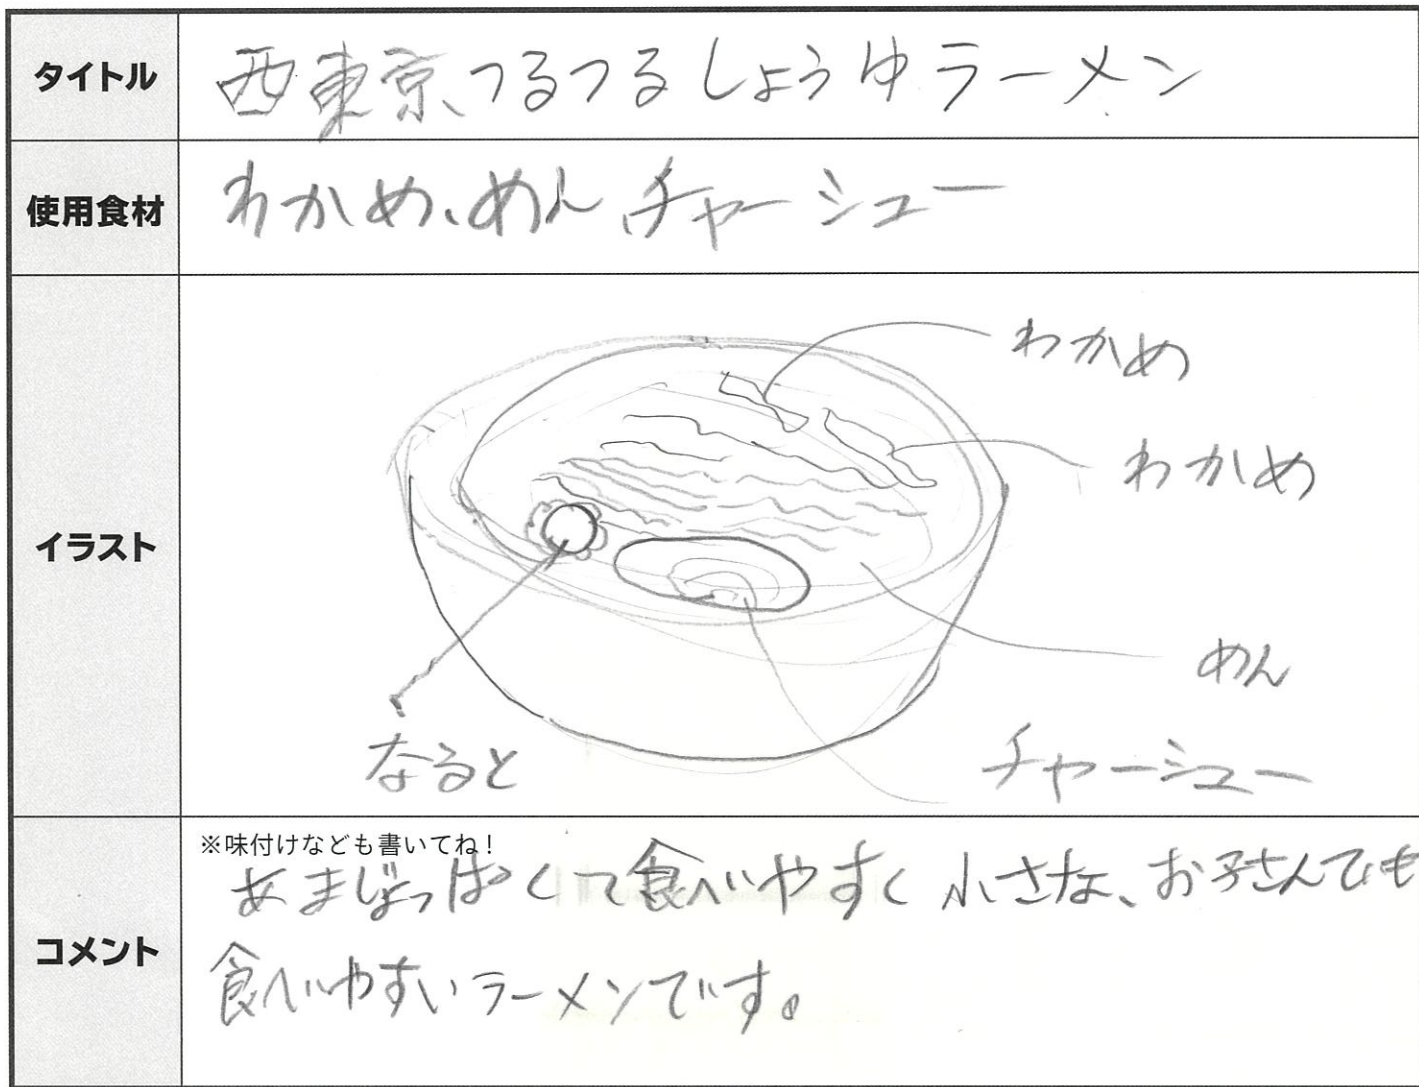 タイトル
西東京、つるつるしょうゆラーメン
使用食材
わかめ、めん、チャーシュー
イラスト
わかめ
わかめ
めん
なると
チャーシュー
コメント
※味付けなども書いてね！
あまじょっぱくて食べやすく小さな、お子さんでも
食べやすいラーメンです。